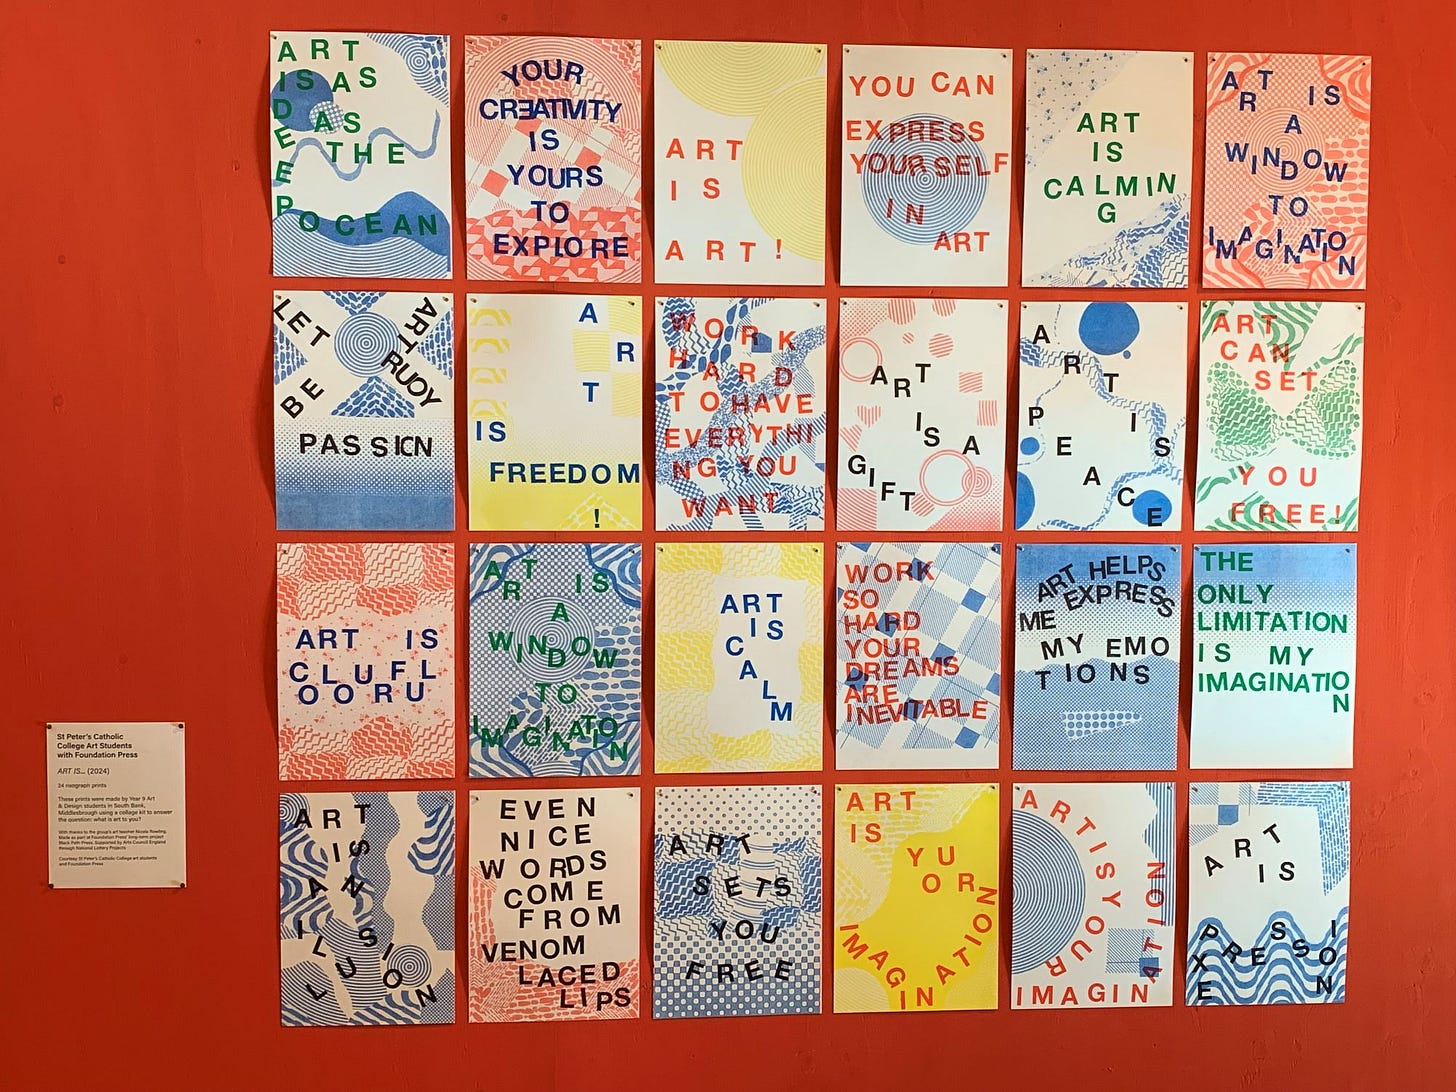 ART
IS AS
DEEP
AS
THE
OCEAN
YOUR
CREATIVITY
IS
YOURS
TO
EXPLORE
ART
IS
ART!
YOU CAN
EXPRESS
YOURSELF
IN
ART
ART
IS
CALMIN
G
ART IS
A
WINDOW
TO
IMAGINATION
LET
BE
ART
RUOY
PASSION
ART
IS
FREEDOM
!
WORK
HARD
TO HAVE
EVERYTHI
NG YOU
WANT
ART
IS A
GIFT
ART IS
PEACE
ART
CAN
SET
YOU
FREE!
ART IS
CLUFL
OORU
ART IS
A
WINDOW
TO
IMAGINATION
ART
IS
CALM
WORK
SO
HARD
YOUR
DREAMS
ARE
INEVITABLE
ART HELPS
ME EXPRESS
MY EMO
TIONS
THE
ONLY
LIMITATION
IS MY
IMAGINATIO
N
ART
IS
AN
ILLUSION
EVEN
NICE
WORDS
COME
FROM
VENOM
LACED
LIPS
ART
SETS
YOU
FREE
ART
IS
YUOR
IMAGINATION
ART IS YOUR
IMAGINATION
ART
IS
EXPRESSION
St Peter's Catholic
College Art Students
with Foundation Press
ART IS... (2024)
24 risograph prints
These prints were made by Year 9 Art
& Design students in South Bank,
Middlesbrough using a collage kit to answer
the question: what is art to you?
With thanks to the group's art teacher Nicola Rowling.
Made as part of Foundation Press' long-term project
Black Path Press. Supported by Arts Council England
through National Lottery Projects
Courtesy St Peter's Catholic College art students
and Foundation Press